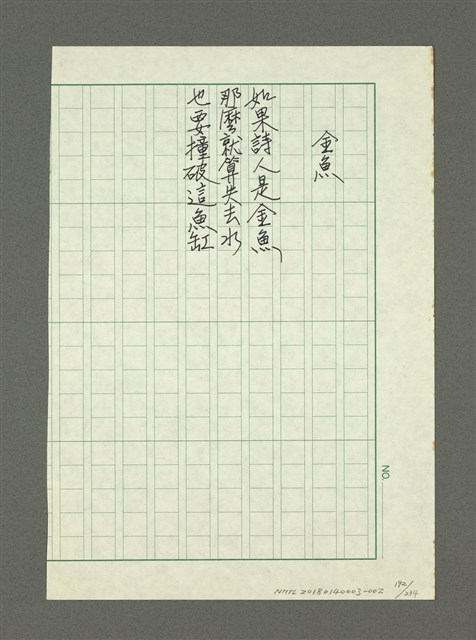 金魚
如果詩人是金魚
那麼就算失去水
也要撞破這魚缸
NO.
192/234
NMTL20180140003-002